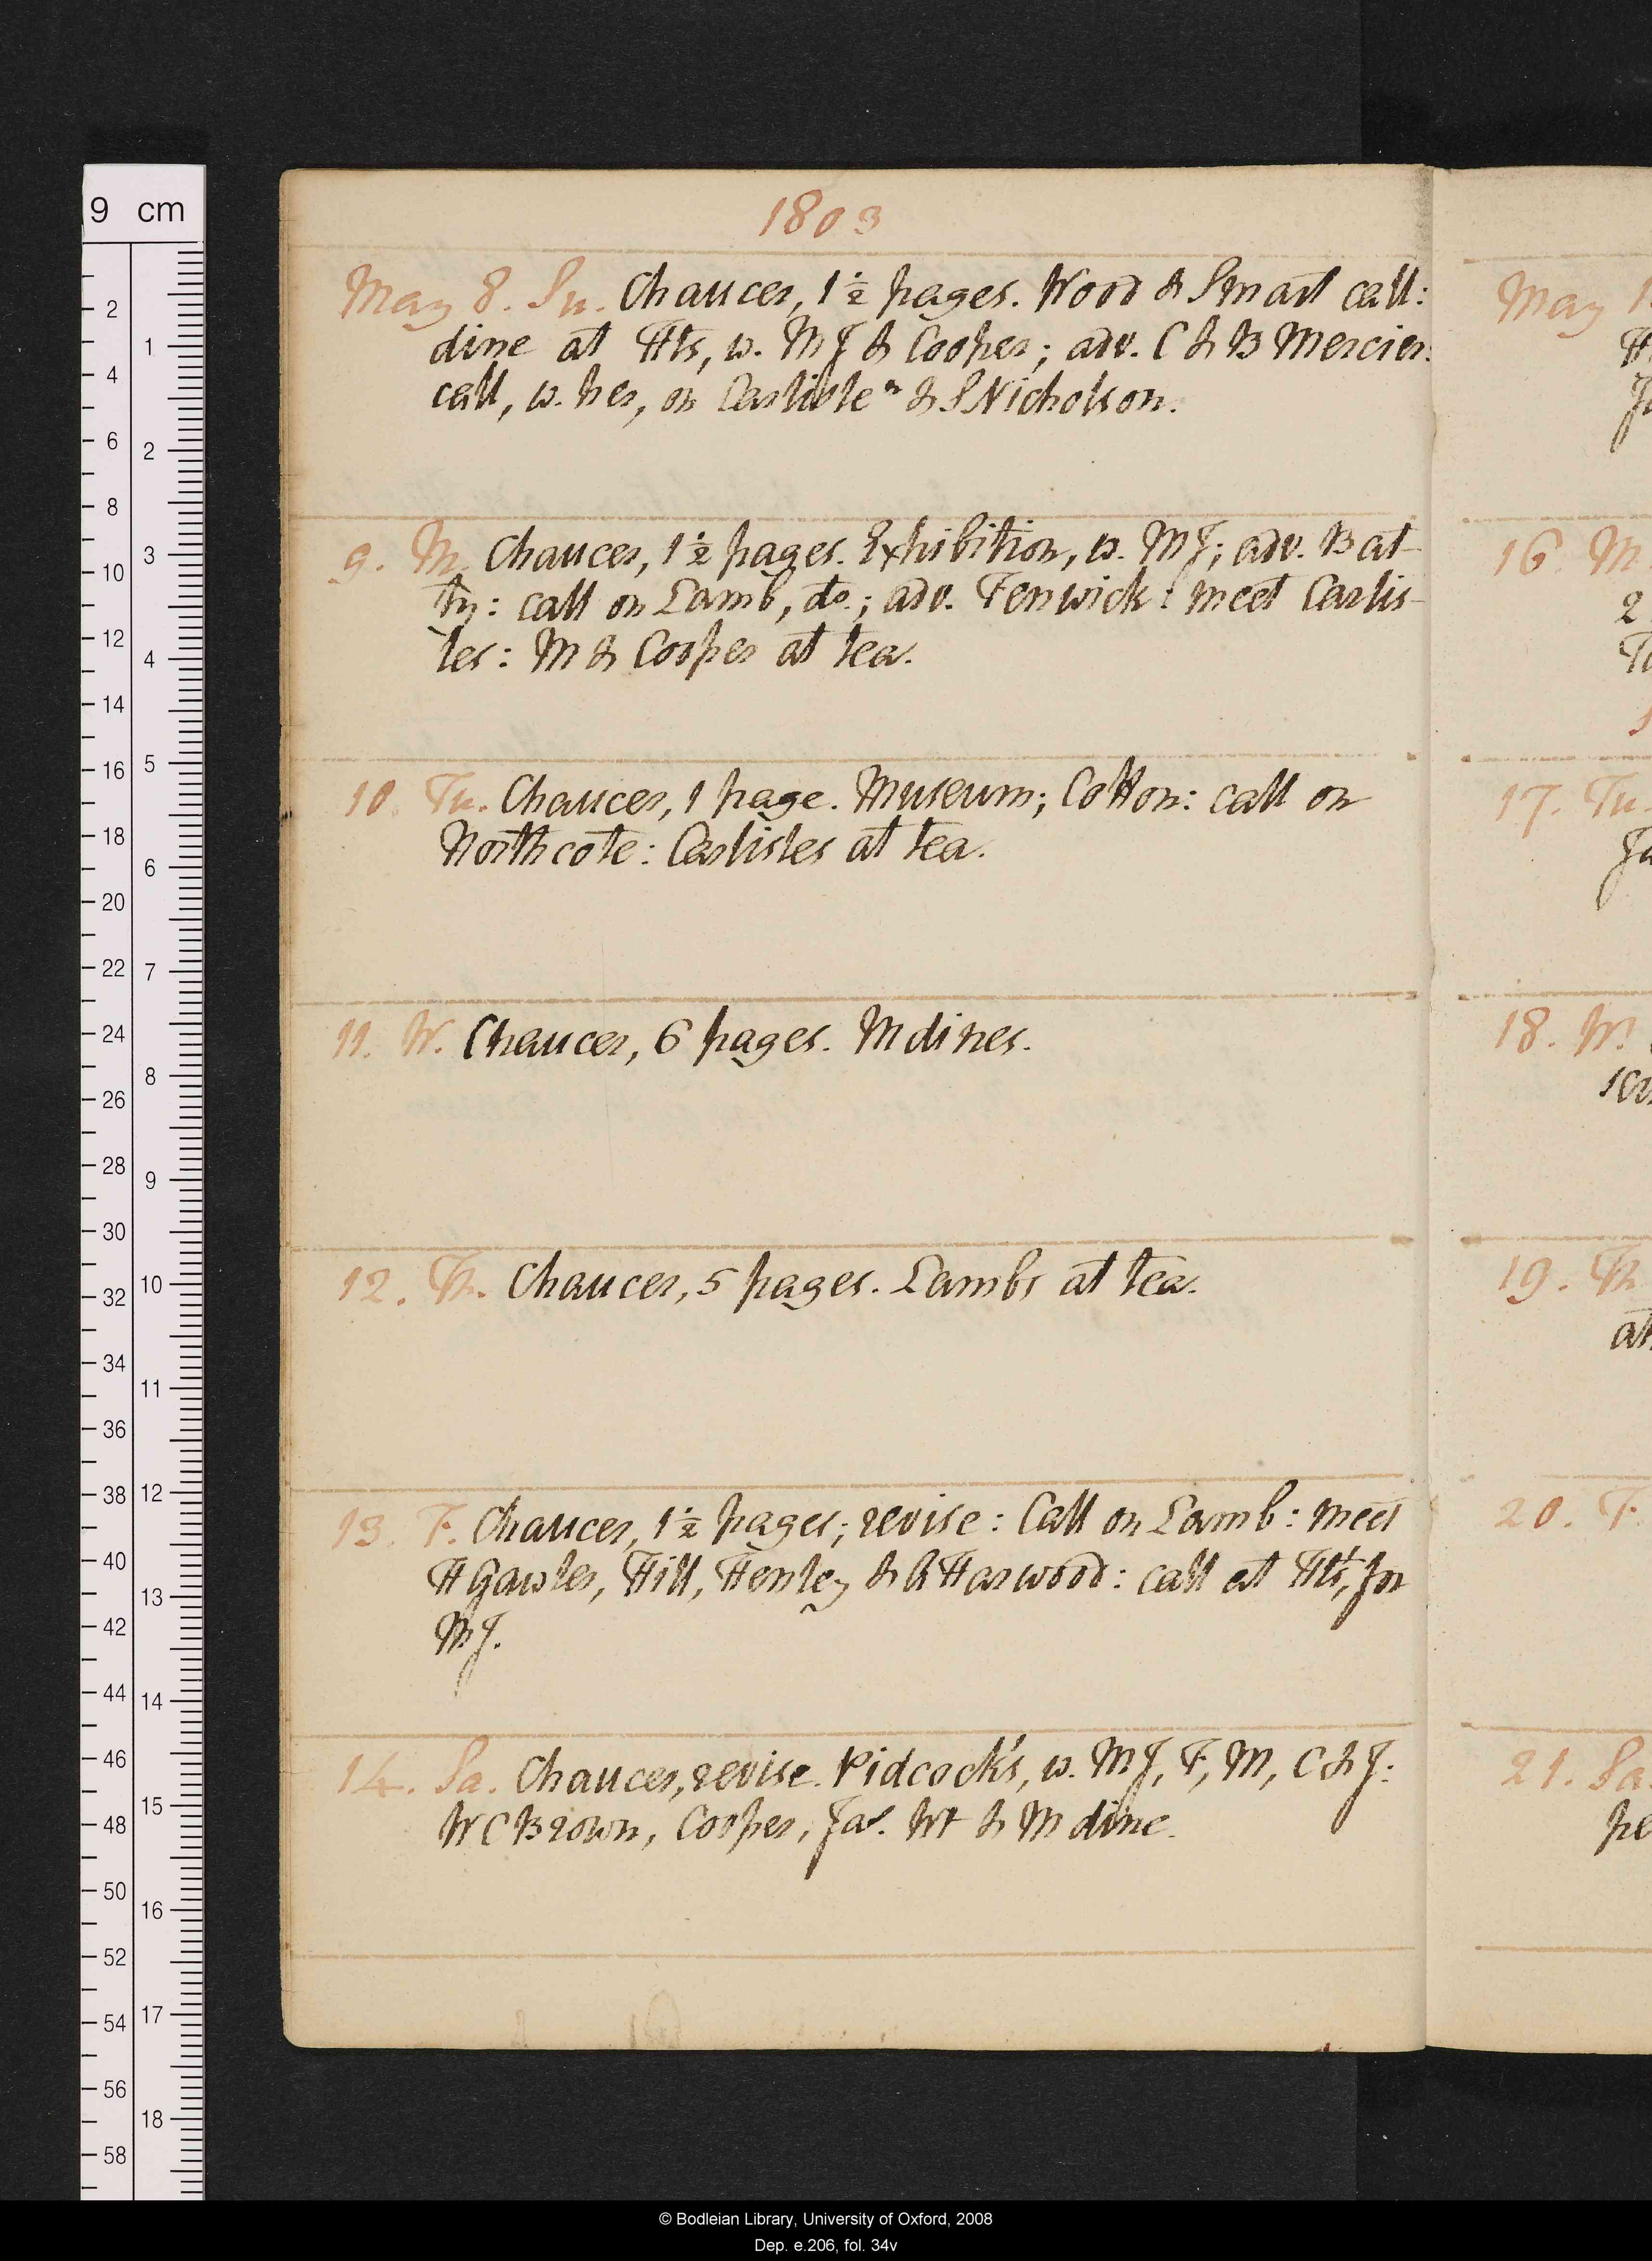 9 cm
1803
May 8. Su. Chaucer, 1½ pages. Wood & Smart call:
dine at Hts, w. MJ & Cooper; adv. C & B Mercier:
call, w. her, on Carlisle n & S Nicholson.
9. M. Chaucer, 1½ pages. Exhibition, w. MJ; adv. Bat-
ty: call on Lamb, do.; adv. Fenwick: meet Carlis-
les: M & Cooper at tea.
10. Tu. Chaucer, 1 page. Museum; Cotton: call on
Northcote: Carlisles at tea.
11. W. Chaucer, 6 pages. M dines.
12. Th. Chaucer, 5 pages. Lambs at tea.
13. F. Chaucer, 1½ pages; revise: Call on Lamb: meet
H Gawler, Hill, Henley & A Harwood: call at Ht's, for
MJ.
14. Sa. Chaucer, revise. Pidcock's, w. MJ, F, M, C & J:
W C Brown, Cooper, Jas. Wt & M dine.
May 1
16. M
2
17. Tu.
18. W.
19. Th
at
20. F
21. Sa.
pe
© Bodleian Library, University of Oxford, 2008
Dep. e.206, fol. 34v